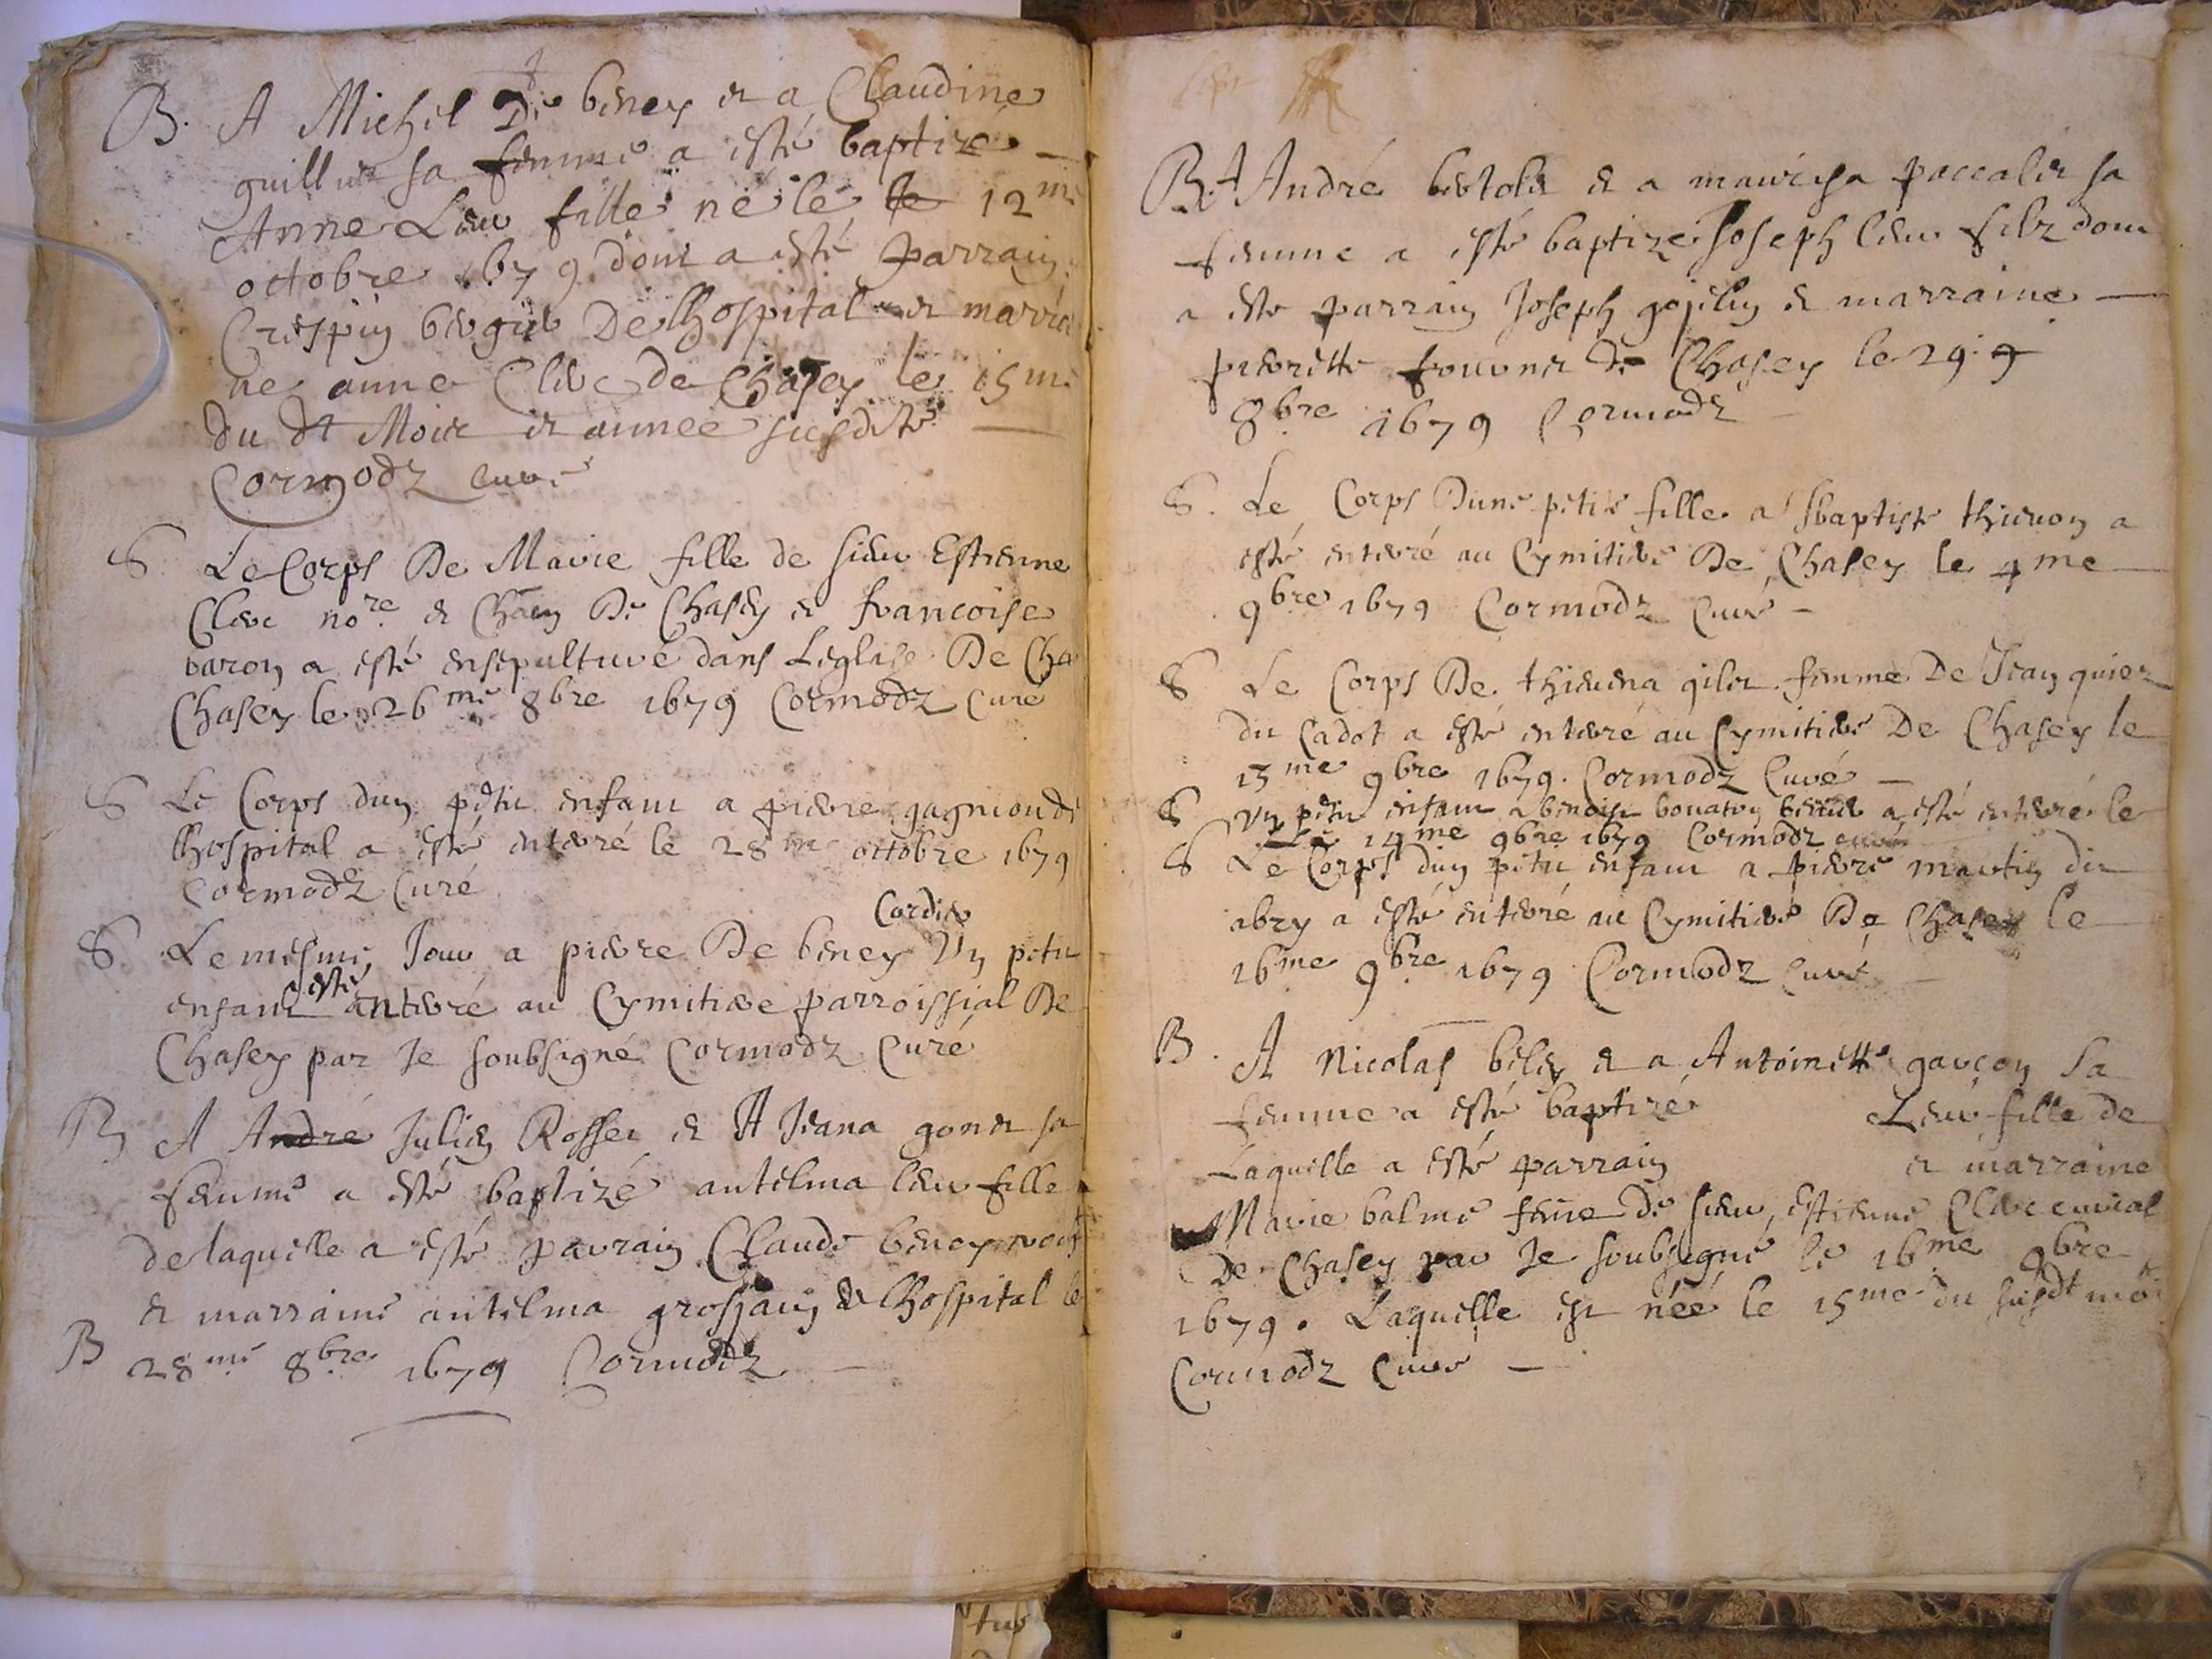 B. A Michel De beney et a Claudine
guillet sa femme a esté baptizé
Anne Leur fille née le 12me
octobre 1679 dont a esté parrain
Crespin bergier De lhospital et marrai
ne anne Clerc de Chasey le 15me
du dt Mois et année susdite
Cormodz curé
S Le Corps De Marie fille de sieur Estienne
Clerc nore et Chain De Chasey et francoise
baron a esté ensepulturé dans Leglise De Cha
Chasey le 26me 8bre 1679 Cormodz Curé
S Le Corps dun petit enfant a pierre gagnion de
lhospital a esté enterré le 28me octobre 1679
Cormodz Curé
Cordier
S Le mesme Jour a pierre De beney Un petit
esté
enfant enterré au Cymitiere parroissial De
Chasey par Je soubsigné Cormodz Curé
B A André Julien Rosset et A Jeana gonet sa
femme a esté baptizé antelma leur fille
de laquelle a esté parrain Claude beney
et marraine antelma grosjain de lhospital le
B 28me 8bre 1679 Cormodz
B. A André bertolet et a maurisa paccalet sa
femme a esté baptizé Joseph leur filz dont
a esté parrain Joseph gojelin et marraine
pierrette de Chasey le 29
8bre 1679 Cormodz
S. Le Corps Dune petite fille a Jbaptiste thievon a
esté enterré au Cymitiere De Chasey le 4me
9bre 1679 Cormodz Curé
S Le Corps De thievena gilet femme De Jean quier
du Cadot a esté enterré au Cymitiere De Chasey le
13me 9bre 1679. Cormodz Curé
S Un petit enfant a benoist bouaton a esté enterré le
Le 14me 9bre 1679 Cormodz curé
S Le Corps dun petit enfant a pierre martin dit
abry a esté enterré au Cymitiere De Chasey le
16me 9bre 1679 Cormodz Curé
B. A Nicolas beley et a Antoinette garçon Sa
femme a esté baptizé Leur fille de
Laquelle a esté parrain et marraine
Marie balme feme de sieur estienne Clerc curial
De Chasey par Je soubsigné le 16me 9bre
1679. Laquelle est néé le 15me du susdt moi
Cormodz Curé